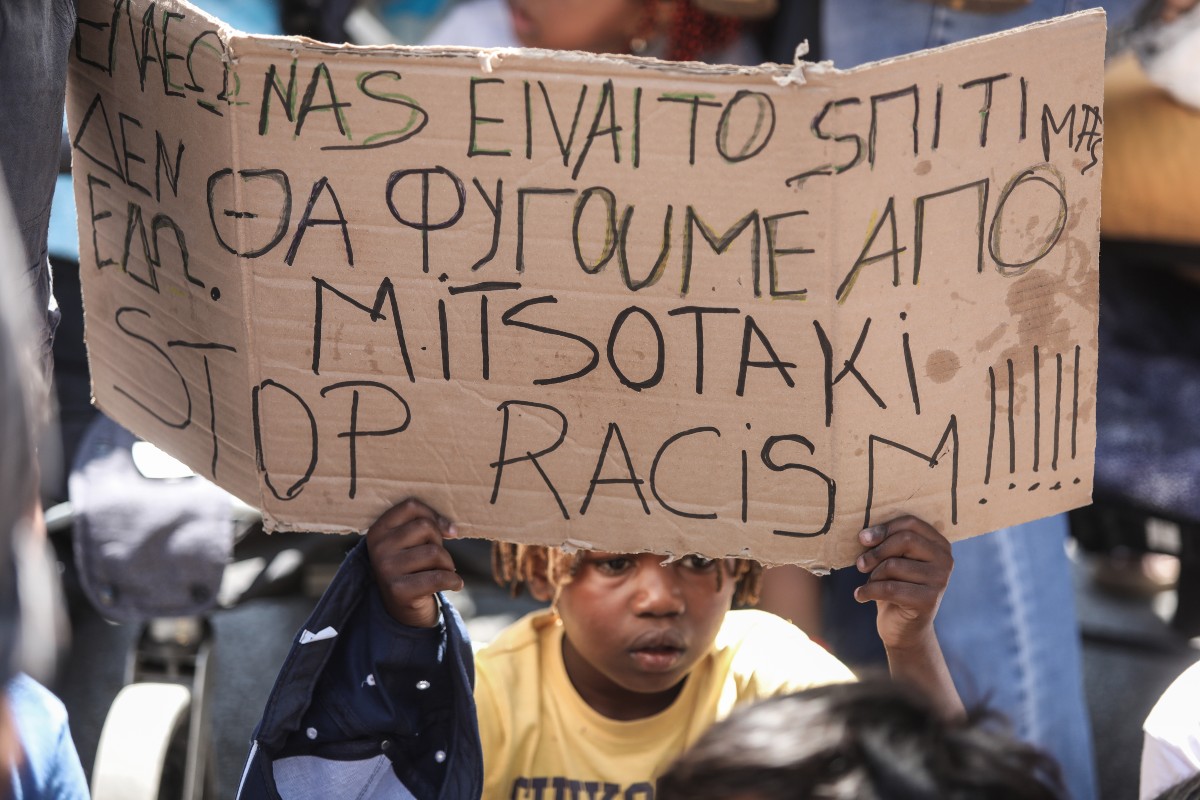 ΕΛΑΕΩΝΑS ΕΙΝΑΙ ΤΟ SΠΙΤΙ ΜΑS
ΔΕΝ ΘΑ ΦΥΓΟΥΜΕ ΑΠΟ
ΕΔΩ. MiTSOTAKi
STOP RACiSM !!!!!